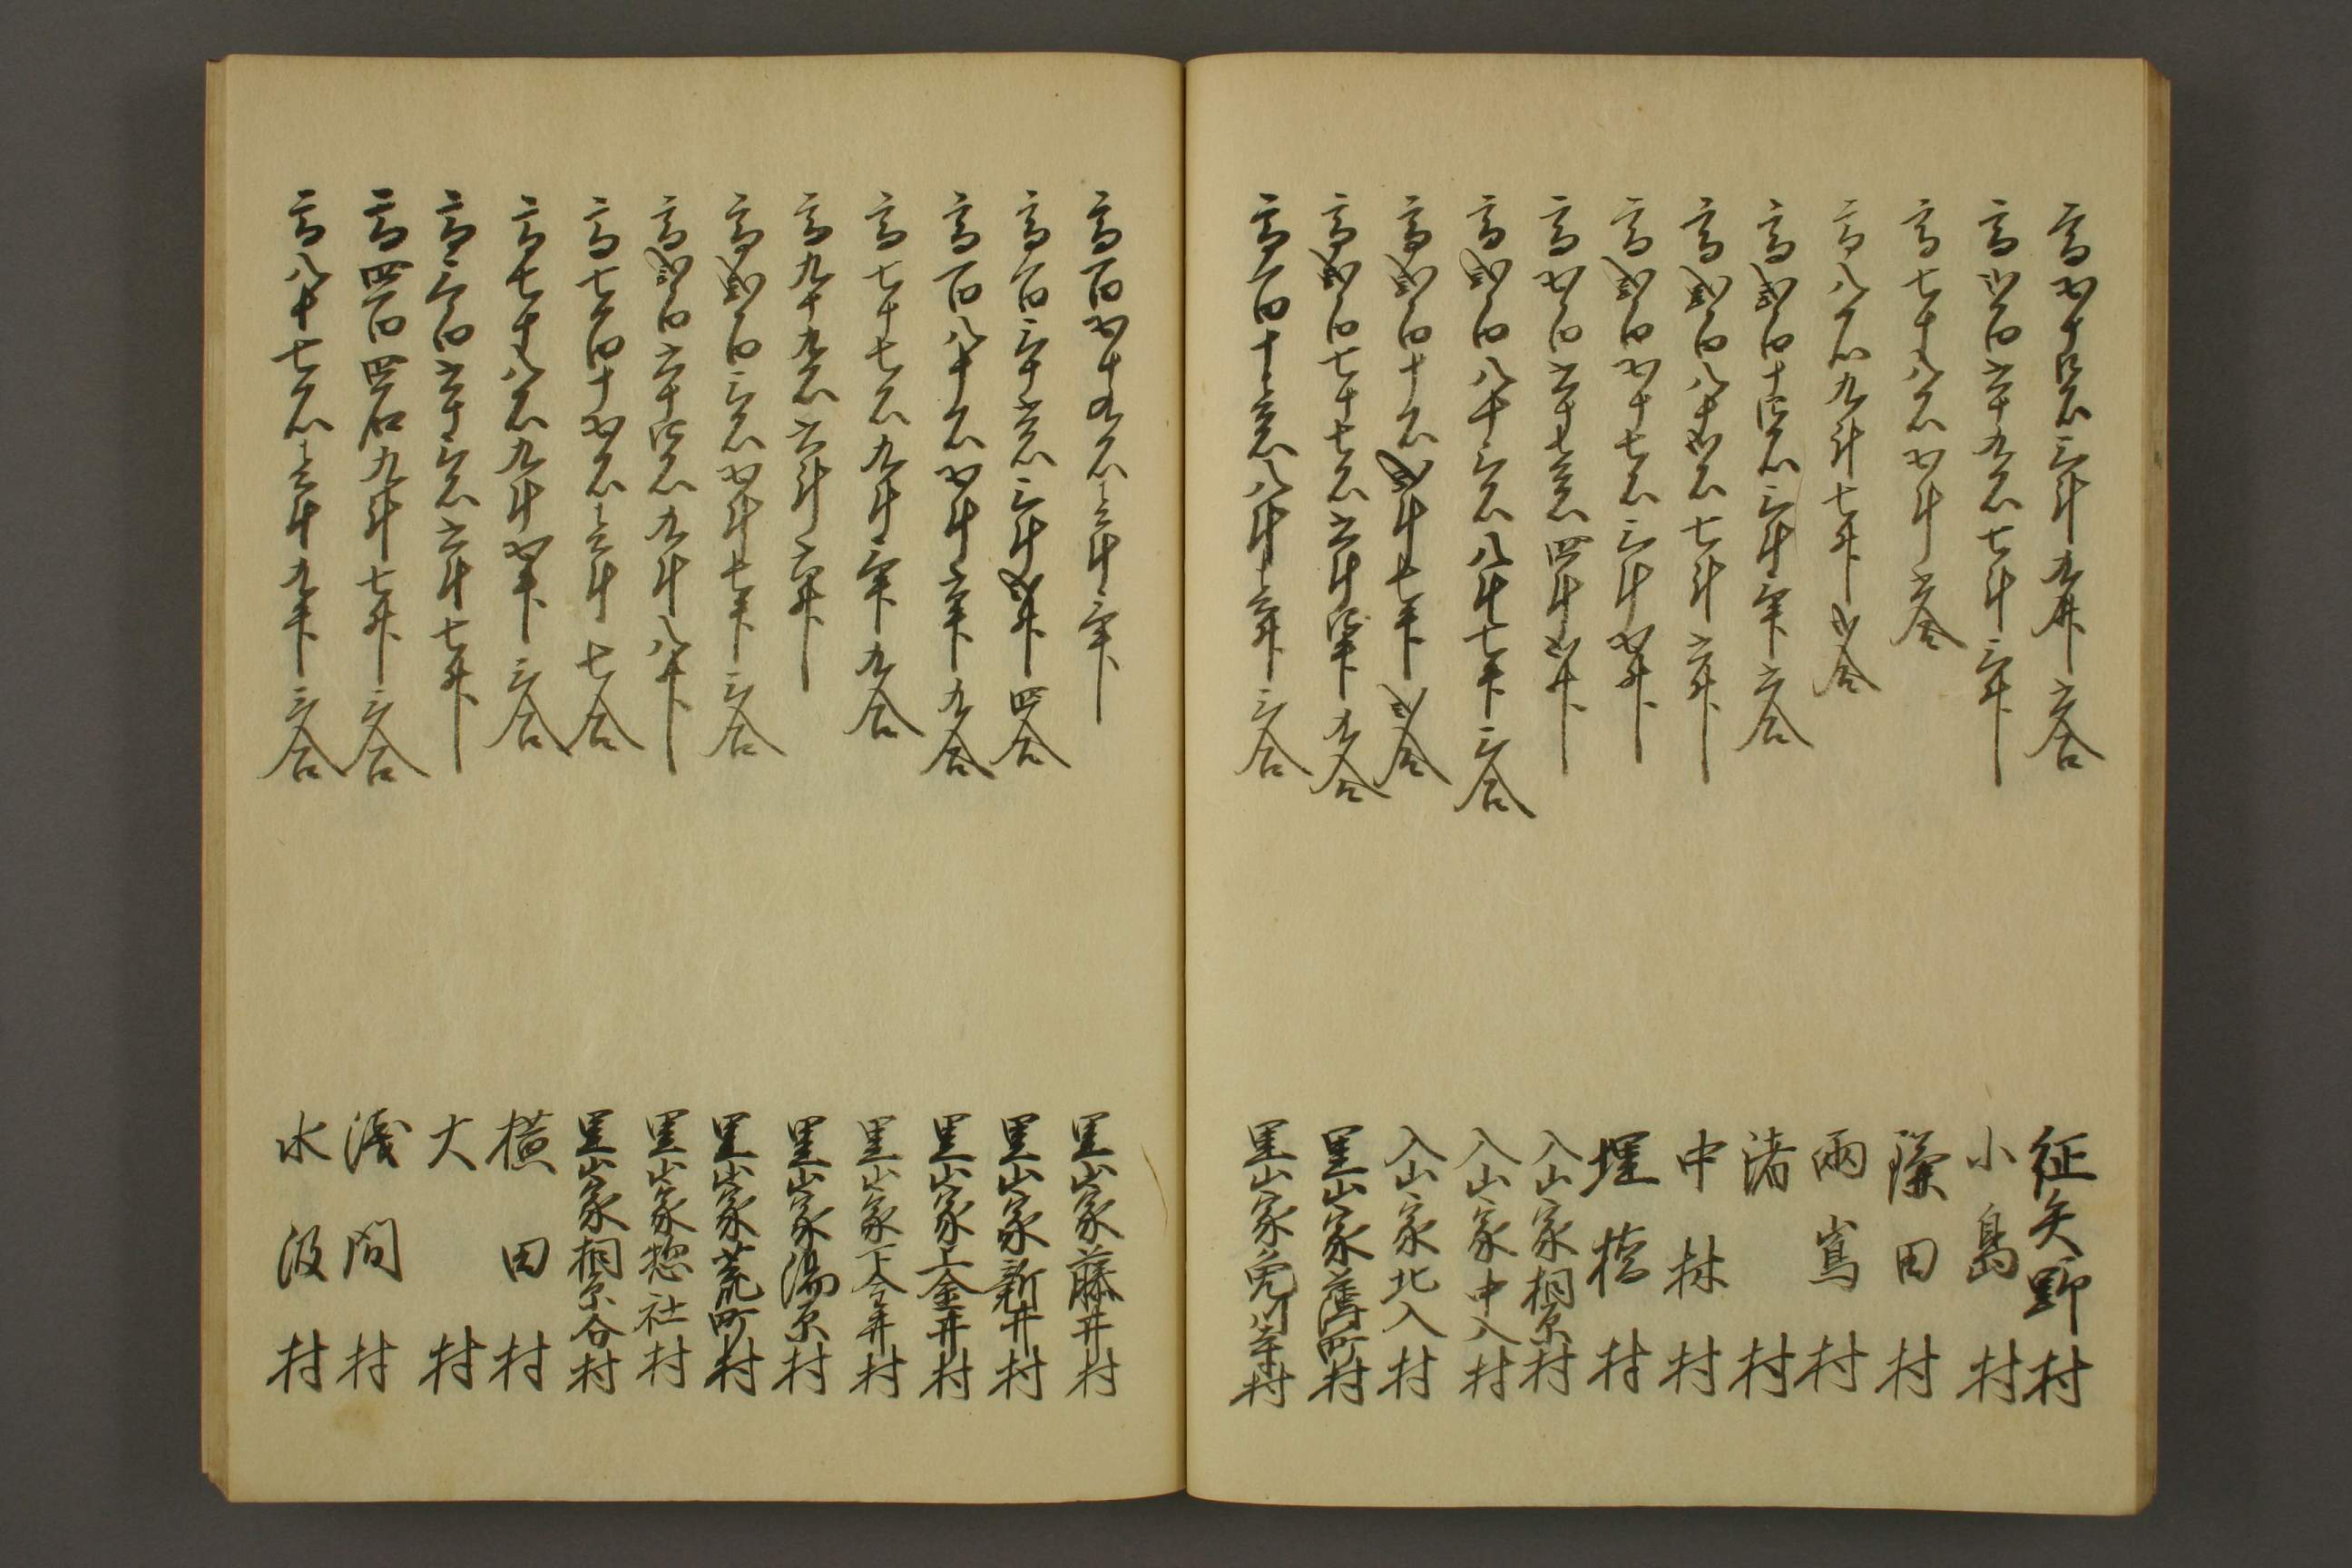 高五十四石三斗九升六合 征矢野村
高弐百六十九石七斗三升 小島村
高七十八石五斗六合 鎌田村
高八石九斗七升弐合 兩嶌村
高弐百十四石三斗壱升六合 渚村
高弐百八十弐石七斗六升 中林村
高弐百五十七石三斗五升 埋橋村
高五百六十壱石四斗弐升 入山家桐原村
高弐百八十三石八斗七升三合 入山家中入村
高弐百十石弐斗七升弐合 入山家北入村
高弐百七十七石六斗四升九合 里山家薄町村
高百十壱石八斗壱升三合 里山家兎川寺村
高百五十九石壱斗壱升 里山家藤井村
高百三十壱石三斗弐升四合 里山家新井村
高百八十石五斗六升九合 里山家上金井村
高七十七石九斗壱升九合 里山家下金井村
高九十九石六斗六升 里山家湯原村
高弐百三石五斗七升三合 里山家荒町村
高弐百六十四石九斗八升 里山家惣社村
高七百十五石壱斗七合 里山家桐原分村
高七十八石九斗五升三合 横田村
高三百六十三石六斗七升 大村
高四百四石九斗七升三合 淺間村
高八十七石壱斗九升三合 水汲村